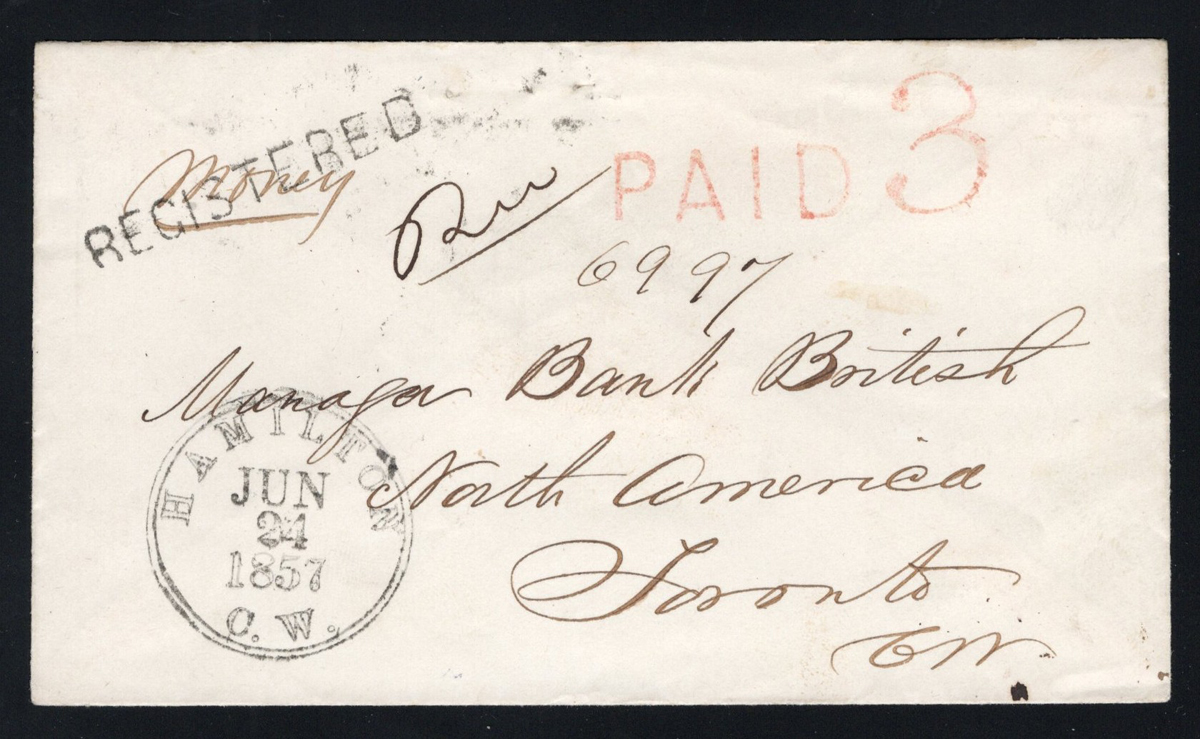 REGISTERED
Money
PAID 3
6997
Manager Bank British
North America
Toronto
CW
HAMILTON
JUN
24
1857
C. W.